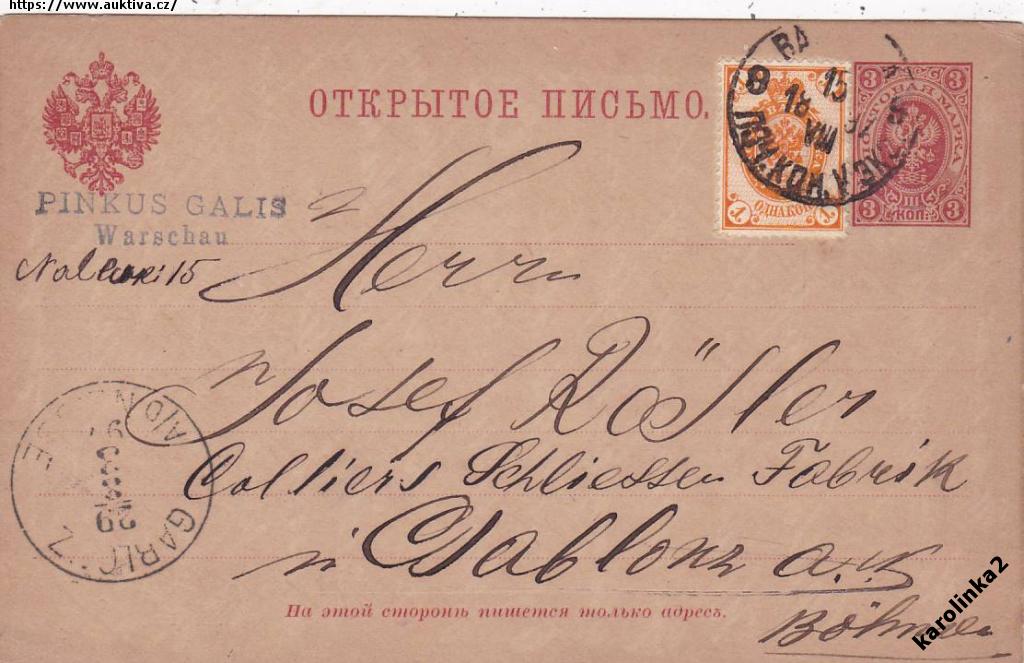 https://www.auktiva.cz/
ОТКРЫТОЕ ПИСЬМО.
ОДНА КОП.
1 1
ПОЧТОВАЯ МАРКА
3 3
3 III 3
КОП:
PINKUS GALIS
Warschau
Nalewki 15
Herrn
Josef Rösler
Colliers Schliessen Fabrik
in Gablonz a.N.
Böhmen
На этой сторонѣ пишется только адресъ.
karolinka2